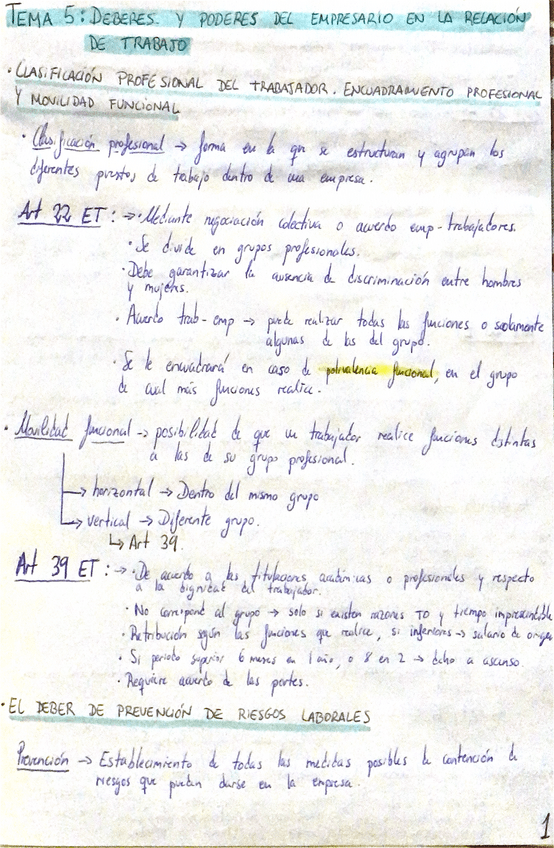 TEMA 5: DEBERES. Y PODERES DEL EMPRESARIO EN LA RELACIÓN
DE TRABAJO
· CLASIFICACIÓN PROFESIONAL DEL TRABAJADOR. ENCUADRAMIENTO PROFESIONAL
Y MOVILIDAD FUNCIONAL
· Clasificación profesional → forma en la que se estructuran y agrupan los
diferentes puestos de trabajo dentro de una empresa.
Art 22 ET: → · Mediante negociación colectiva o acuerdo emp-trabajadores.
· Se divide en grupos profesionales.
· Debe garantizar la ausencia de discriminación entre hombres
y mujeres.
· Acuerdo trab-emp → puede realizar todas las funciones o solamente
algunas de las del grupo.
· Se le encuadrará en caso de polivalencia funcional, en el grupo
de cual más funciones realice.
· Movilidad funcional → posibilidad de que un trabajador realice funciones distintas
a las de su grupo profesional.
→ horizontal → Dentro del mismo grupo
→ vertical → Diferente grupo.
↳ Art 39.
Art 39 ET: → · De acuerdo a las titulaciones académicas o profesionales y respecto
a la dignidad del trabajador.
· No correspond al grupo → solo si existen razones TO y tiempo imprescindible
· Retribución según las funciones que realice, si inferiores → salario de origen
· Si periodo superior 6 meses en 1 año, o 8 en 2 → dcho a ascenso.
· Requiere acuerdo de las partes.
· EL DEBER DE PREVENCIÓN DE RIESGOS LABORALES
Prevención → Establecimiento de todas las medidas posibles de contención de
riesgos que puedan darse en la empresa.
1